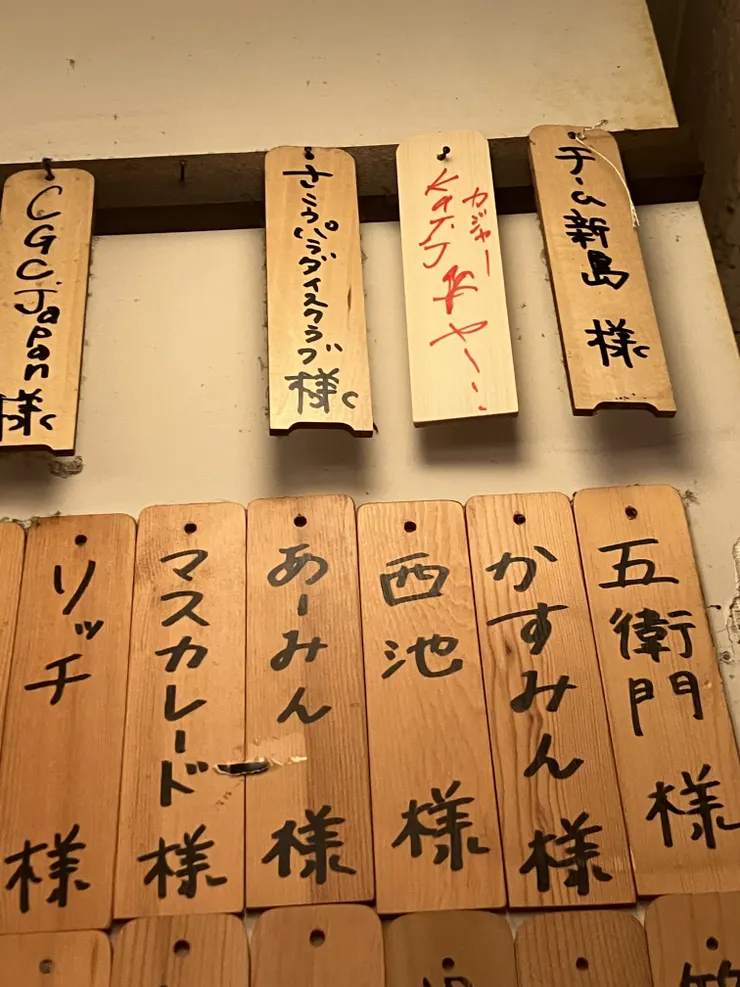 CGC Japan 様
さこうパラダイスクラブ 様
カジャー
チーム新島 様
リッチ 様
マスカレード 様
あーみん 様
西池 様
かすみん 様
五衛門 様